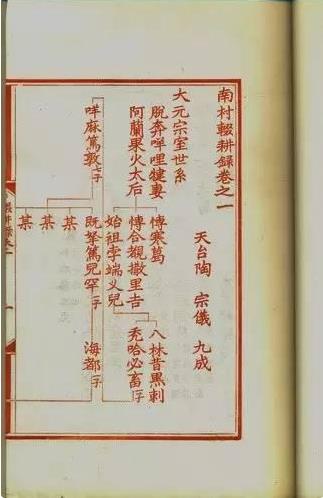 南村輟耕錄卷之一
天台陶 宗儀 九成
大元宗室世系
脫奔咩哩犍妻
阿蘭果火太后
博寒葛
博合覩撒里吉
始祖孛端叉兒
八林昔黑剌
禿哈必畜
咩麻篤敦
既拏篤兒罕
海都
某
某
某